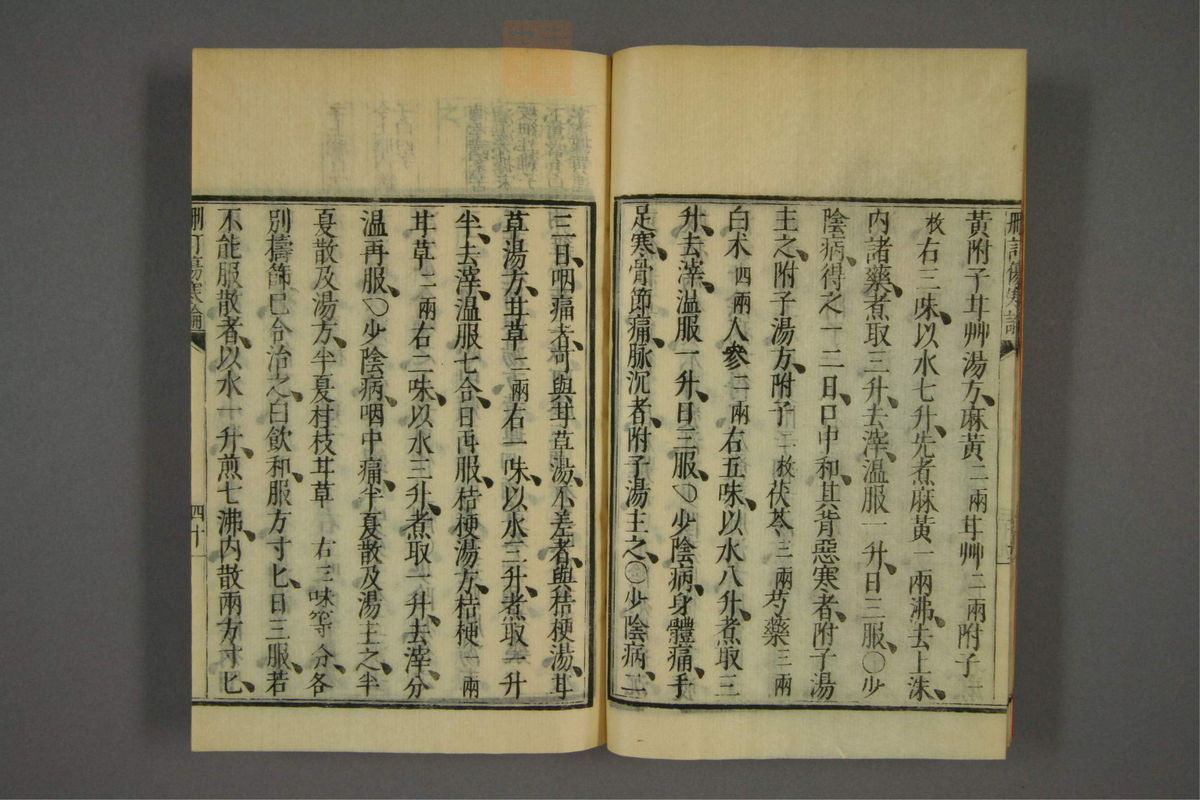 刪訂傷寒論
黃附子甘艸湯方、麻黃二兩甘艸二兩附子一
枚右三味、以水七升、先煮麻黃一兩沸、去上沫、
內諸藥、煮取三升、去滓、溫服一升、日三服、〇少
陰病、得之一二日、口中和、其背惡寒者、附子湯
主之、附子湯方、附子二枚茯苓三兩芍藥三兩
白术四兩人參二兩右五味、以水八升、煮取三
升、去滓、溫服一升、日三服、〇少陰病、身體痛、手
足寒、骨節痛、脉沉者、附子湯主之、〇少陰病、二
三日、咽痛者、可與甘草湯、不差者、與桔梗湯、甘
草湯方、甘草二兩右一味、以水三升、煮取一升
半、去滓、溫服七合、日再服、桔梗湯方、桔梗一兩
甘草二兩右二味、以水三升、煮取一升、去滓、分
溫再服、〇少陰病、咽中痛、半夏散及湯主之、半
夏散及湯方、半夏桂枝甘草右三味等分、各
別擣篩巳、合治之、白飲和、服方寸匕、日三服、若
不能服散者、以水一升、煎七沸、內散兩方寸匕、
刪訂傷寒論
四十